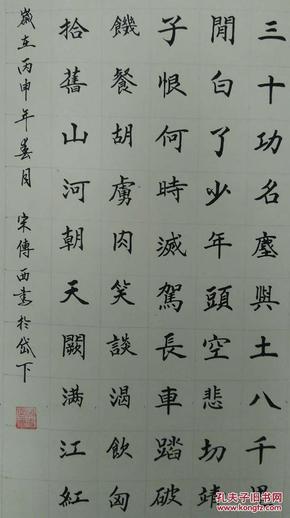 三十功名塵與土八千里
閒白了少年頭空悲切靖
子恨何時滅駕長車踏破
饑餐胡虜肉笑談渴飲匈
拾舊山河朝天闕满江紅
歲在丙申年春月宋傳西書於岱下